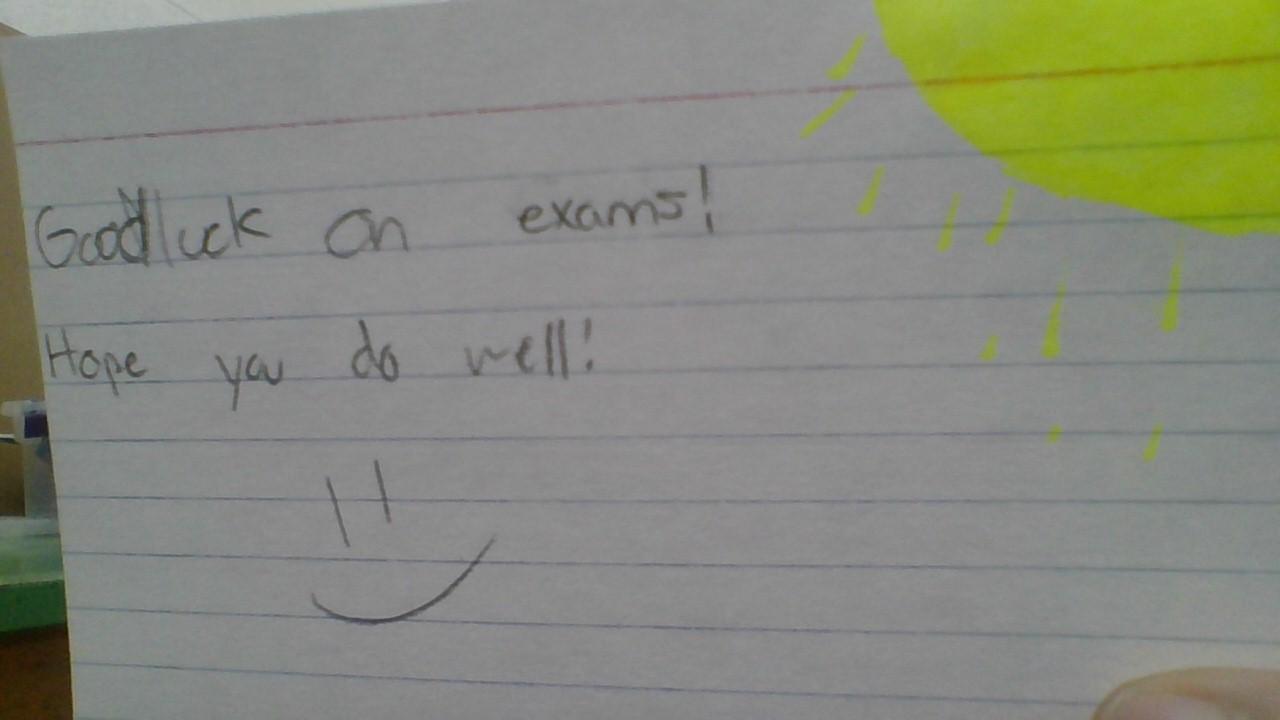 Goodluck on exams!
Hope you do well!